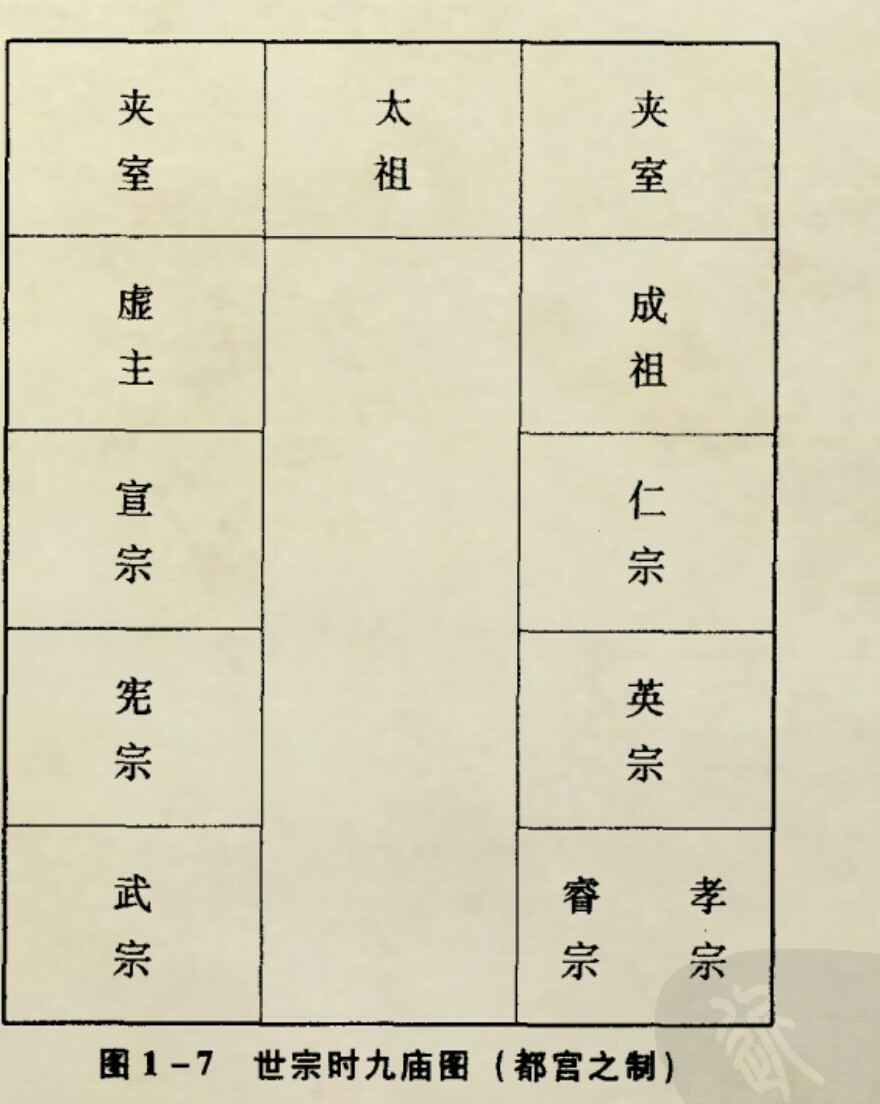 夹室 太祖 夹室
虚主 成祖
宣宗 仁宗
宪宗 英宗
武宗 睿宗 孝宗
图1-7 世宗时九庙图（都宫之制）